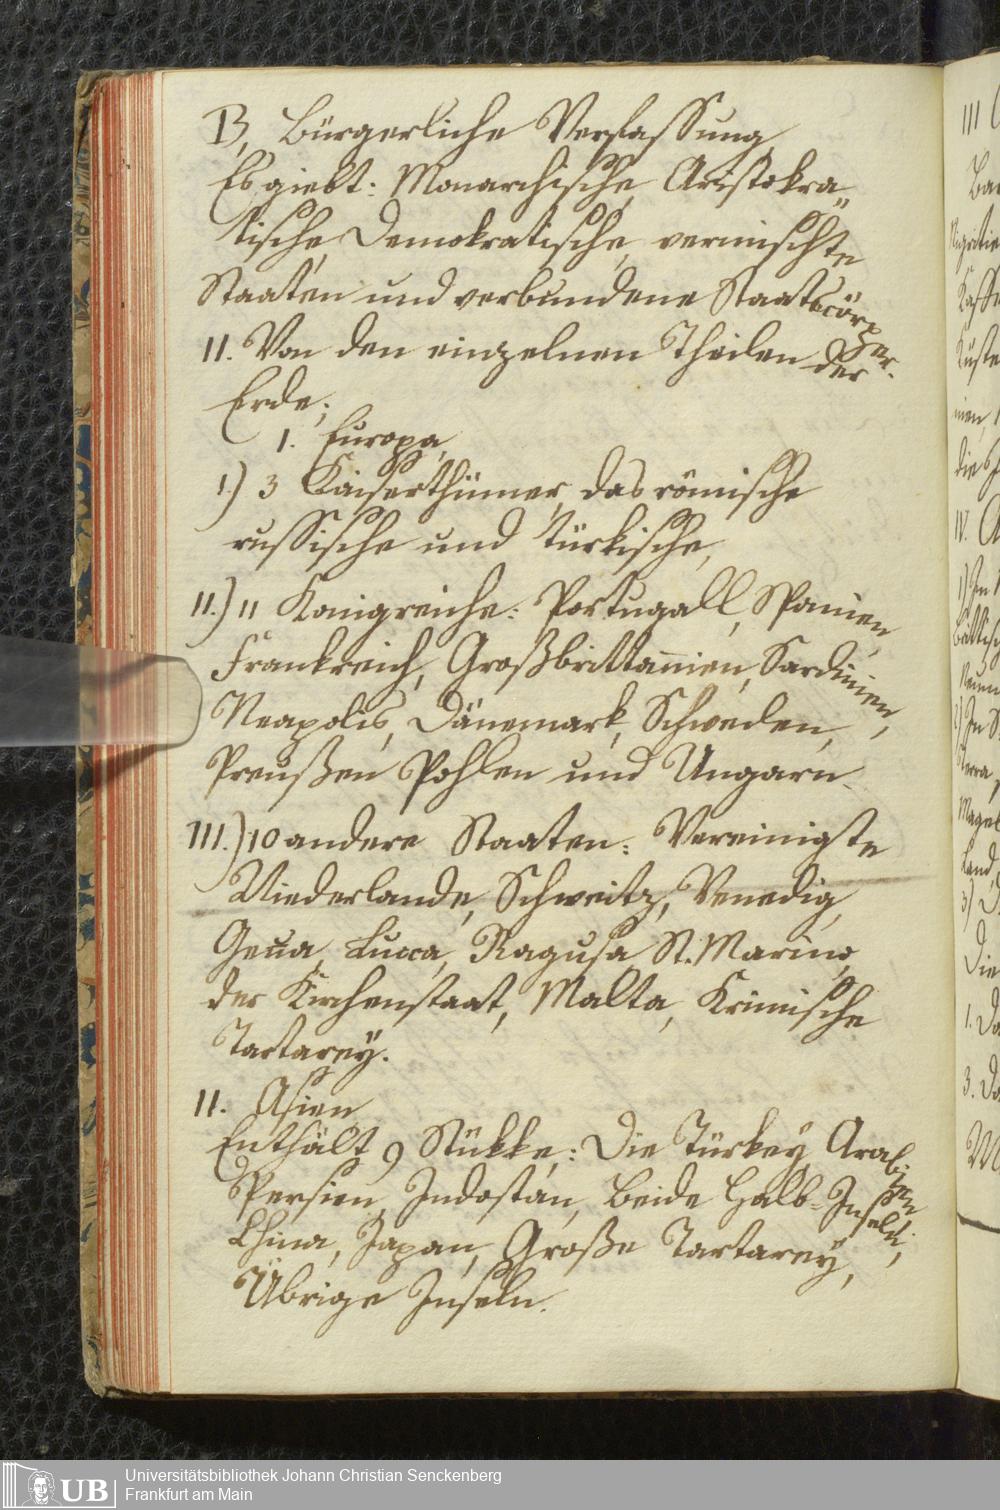 B, Bürgerliche Verfassung
Es giebt: Monarchische, Aristokra„
tische, Demokratische, vermischte
Staaten und verbundene Staatscörper.
II. Von den einzelnen Theilen der
Erde;
1. Europa,
I.) 3 Kaiserthümer, das römische
russische und türkische,
II.) 11 Königreiche: Portugall, Spanien,
Frankreich, Großbrittannien, Sardinien,
Neapolis, Dänemark, Schweden,
Preußen Pohlen und Ungarn.
III.) 10 andere Staaten: Vereinigte
Niederlande, Schweitz, Venedig,
Genua, Lucca, Ragusa St. Marino,
der Kirchenstaat, Malta, Krimische
Tartarey.
II. Asien
Enthält 9 Stükke,: Die Türkey Arabien
Persien, Indostan, beide Halb=Inseln,
China, Japan, Große Tartarey,
Übrige Inseln.
UB
Universitätsbibliothek Johann Christian Senckenberg
Frankfurt am Main